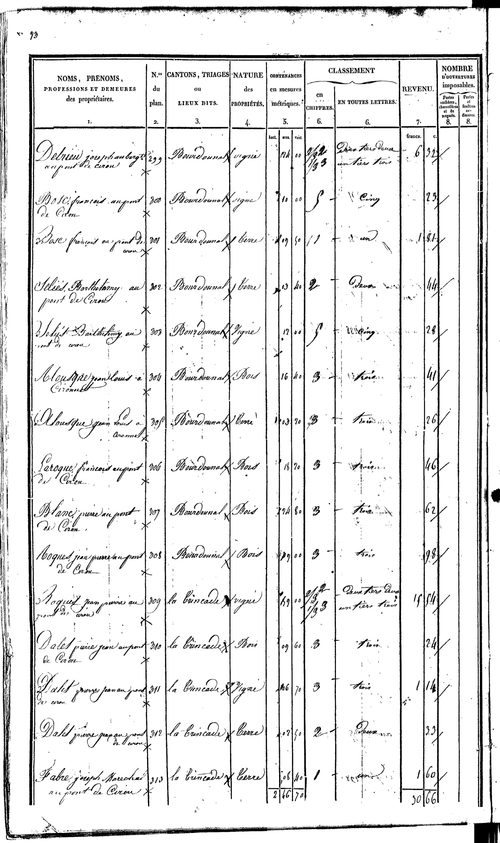 93
NOMS, PRÉNOMS, PROFESSIONS ET DEMEURES des propriétaires. | N.os du plan. | CANTONS, TRIAGES OU LIEUX DITS. | NATURE des PROPRIÉTÉS. | CONTENANCES en mesures métriques. | CLASSEMENT en CHIFFRES. | EN TOUTES LETTRES. | REVENU. | NOMBRE D'OUVERTURES imposables.
1. 2. 3. 4. 5. 6. 6. 7. 8. 8.
francs. c.
299 Bourdounal vigne 2/3 2 Deux tiers deux 6 32
au pont de Cirou 1/3 3 un tiers trois
Bosc françois au pont 300 Bourdounal vigne 10 00 5 Cinq 23
de Cirou
Bosc françois au pont de 301 Bourdounal Terre 09 50 1 un 1 81
Cirou
Barthelemy au 302 Bourdounal Terre 03 40 2 Deux 44
pont de Cirou
Barthelemy au 303 Bourdounal Vigne 17 00 5 Cinq 28
pont de Cirou
jean louis à 304 Bourdounal Bois 16 40 3 trois 41
jean Louis à 305 Bourdounal Terre 03 20 3 trois 26
Laroque françois au pont 306 Bourdounal Bois 18 70 3 trois 46
de Cirou
Blanc pierre au pont 307 Bourdounal Bois 24 80 3 trois 62
de Cirou
Roques jean pierre au pont 308 Bourdounal Bois 00 3 trois 98
de Cirou
Roques jean pierre au 309 la Trincade vigne 00 2/3 2 Deux tiers deux 15 54
pont de Cirou 1/3 3 un tiers trois
Dalet pierre jean au pont 310 la Trincade Bois 09 60 3 trois 24
de Cirou
Dalet pierre jean au pont 311 la Trincade Vigne 70 3 trois 1 14
de Cirou
Dalet pierre jean au pont 312 la Trincade Terre 02 50 2 Deux 33
de Cirou
Fabre joseph Marechal 313 la Trincade Terre 08 40 1 un 1 60
au pont de Cirou
2 66 70 30 66